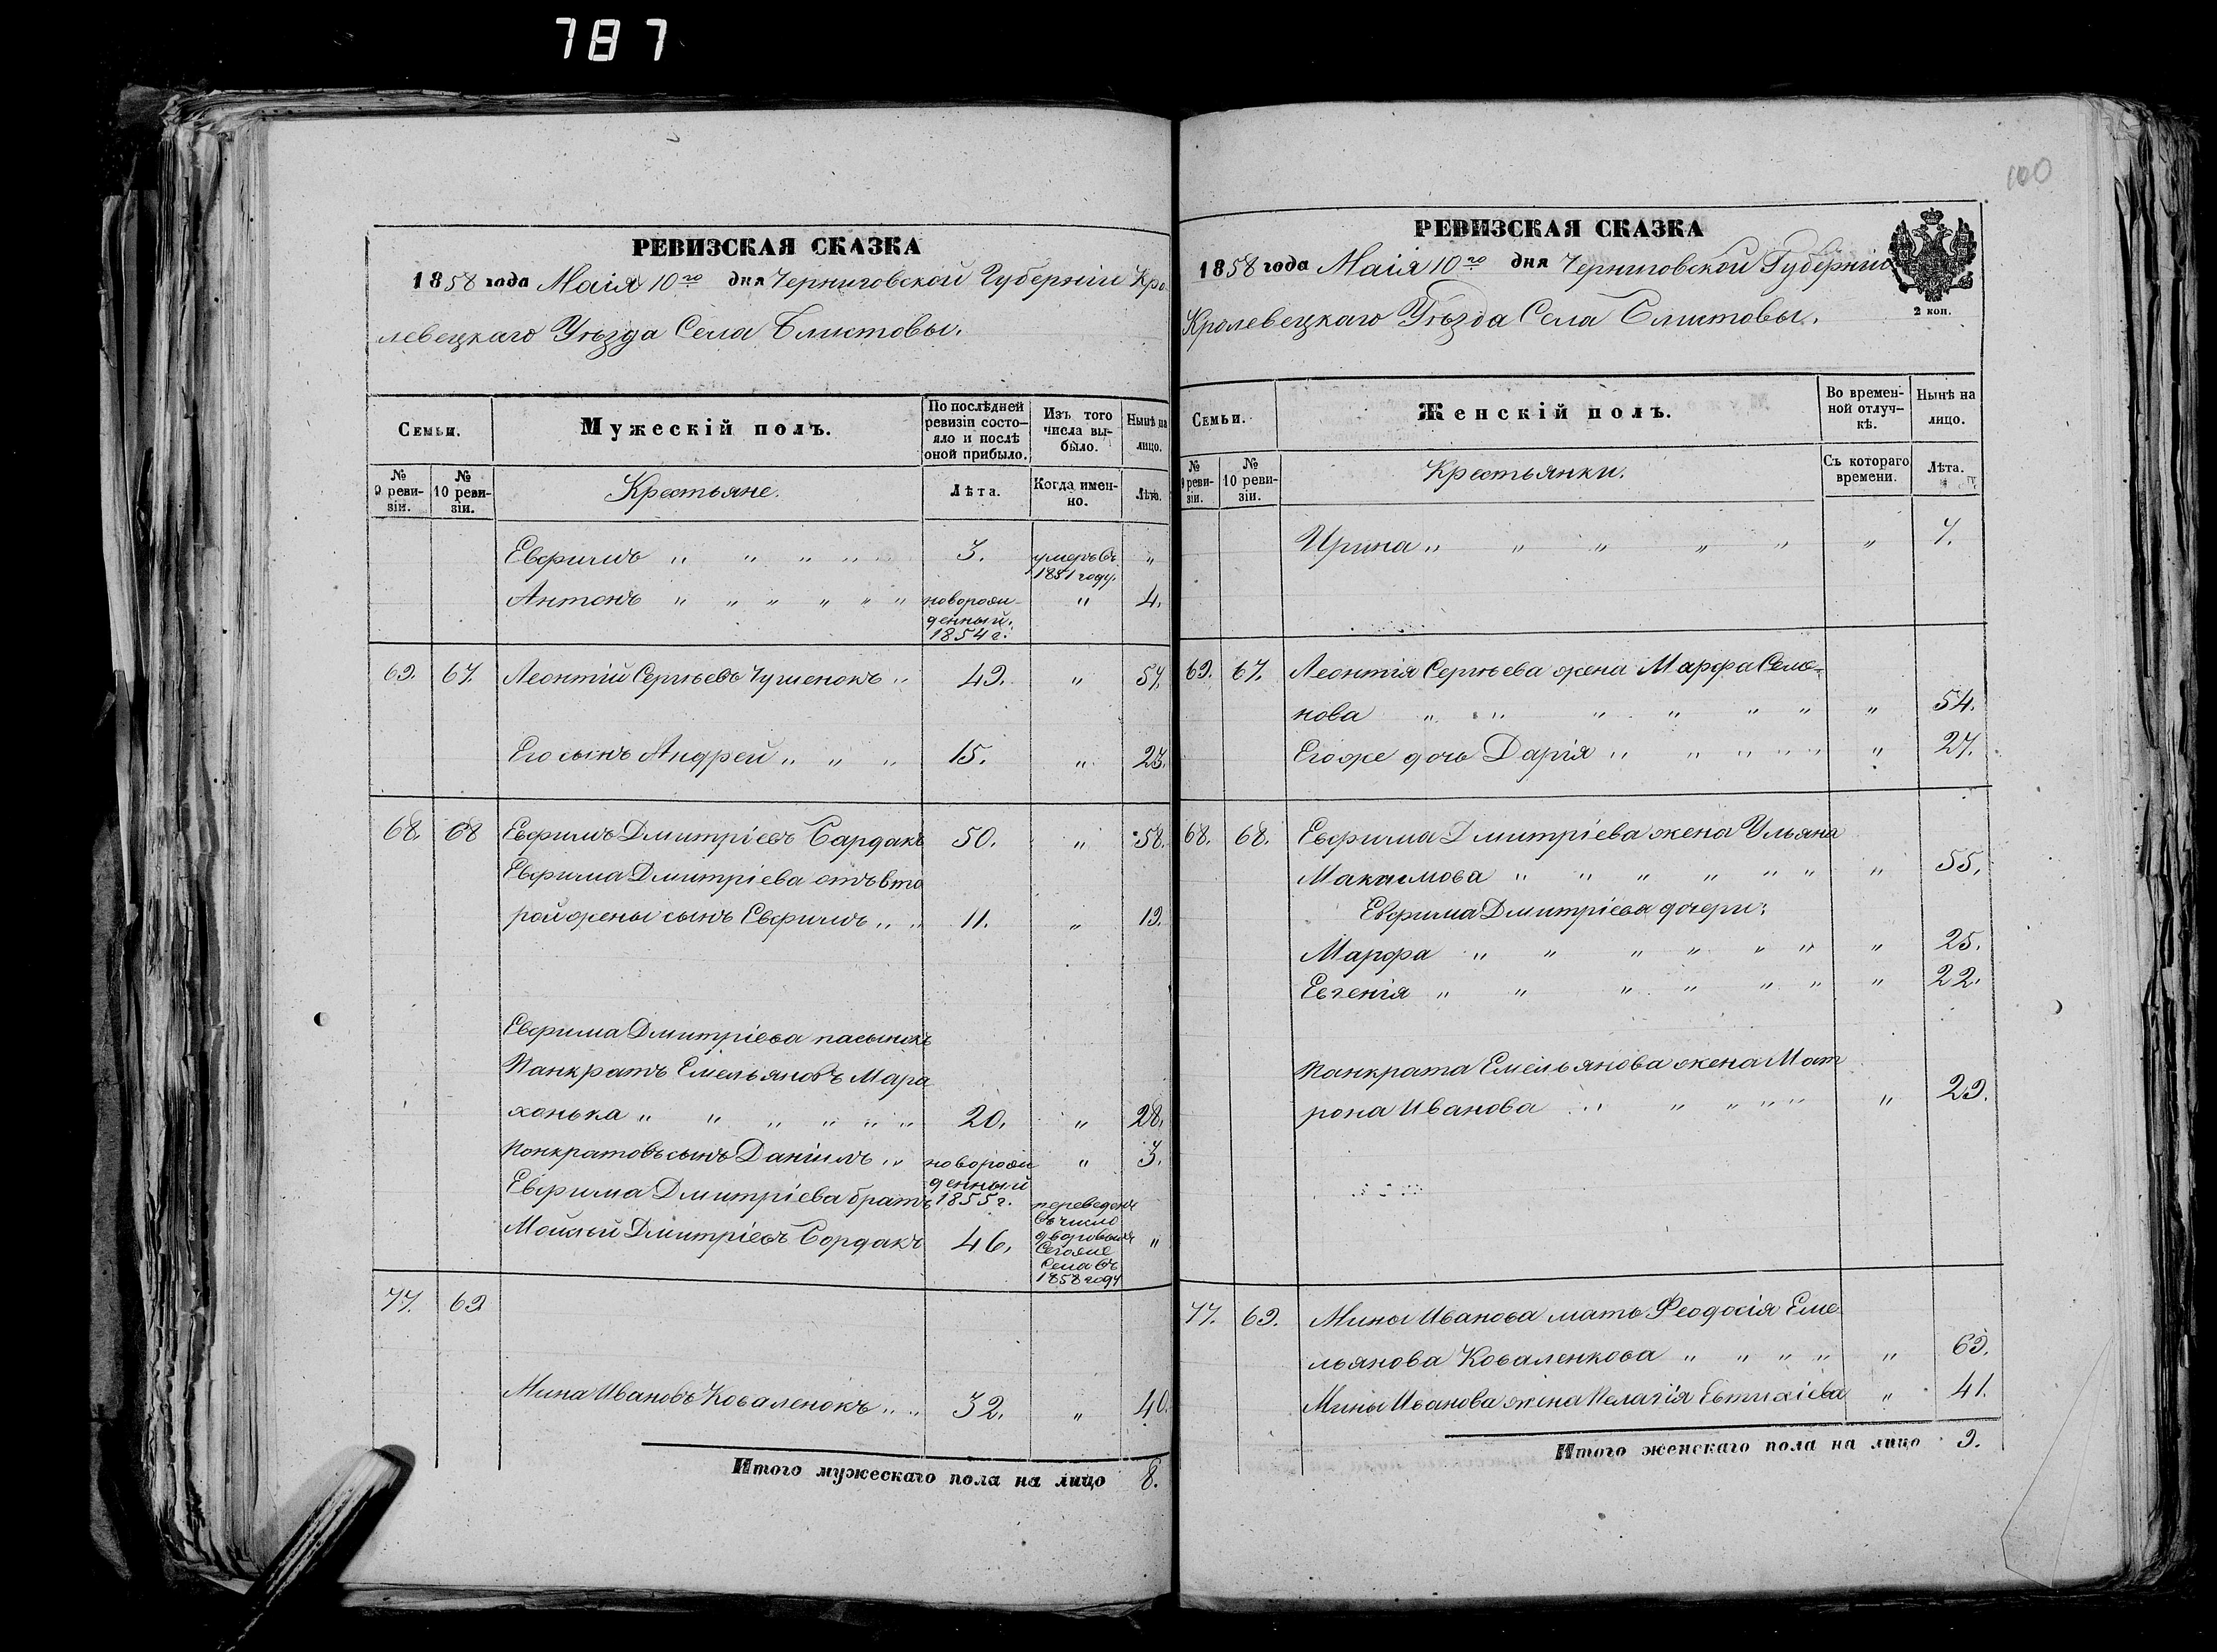 787
100
РЕВИЗСКАЯ СКАЗКА
1858 года Маія 10го дня Черниговской Губерніи Кро
левецкаго Уѣзда Села Блистовы.
Семьи.
Мужескій полъ.
По послѣдней ревизіи состояло и послѣ оной прибыло.
Изъ того числа выбыло.
Нынѣ на лицо.
№ 9 ревизіи.
№ 10 ревизіи.
Крестьяне.
Лѣта.
Когда именно.
Лѣта.
Евфимъ " " " " " 3. умеръ въ 1851 году. "
Антонъ " " " " " " новорожденный. 1854 г. " 4.
69. 67. Леонтій Сергѣевъ " 49. " 57.
Его сынъ Андрей " " " 15. " 23.
68. 68 Евфимъ Дмитріевъ Сардакъ 50. " 58.
Евфима Дмитріева отъ вто
рой жены сынъ Евфимъ " " 11. " 19.
Евфима Дмитріева пасынокъ
Панкратъ Емельяновъ Мара
хонька " " " " " " 20. " 28.
Понкратовъ сынъ Даніилъ " новорожденный 1855 г. " 3.
Евфима Дмитріева братъ
Мойсей Дмитріевъ Сордакъ 46. переведенъ въ число дворовыхъ Сегоже Села въ 1858 году "
77. 69
Мина Ивановъ Коваленокъ " " 32. " 40.
Итого мужескаго пола на лицо 8.
РЕВИЗСКАЯ СКАЗКА
1858 года Маія 10го дня Черниговской Губерніи
Кролевецкаго Уѣзда Села Блистовы.
2 коп.
Семьи.
Женскій полъ.
Во временной отлучкѣ.
Нынѣ на лицо.
№ 9 ревизіи.
№ 10 ревизіи.
Крестьянки.
Съ котораго времени.
Лѣта.
Ирина " " " " " " 7.
69. 67. Леонтія Сергѣева жена Марфа Семе-
нова " " " " " " " 54.
Егоже дочь Дарія " " " " " " 27.
68. 68. Евфима Дмитріева жена Ульяна
Максимова " " " " " " " 55.
Евфима Дмитріева дочери:
Марфа " " " " " " " 25.
Евгенія " " " " " " " 22.
Панкрата Емельянова жена Мат
рона Иванова " " " " " " 29.
77. 69. Мины Иванова мать Феодосія Еме
льянова Коваленкова " " " " " 69.
Мины Иванова жена Пелагія Евтихіева " 41.
Итого женскаго пола на лицо 9.